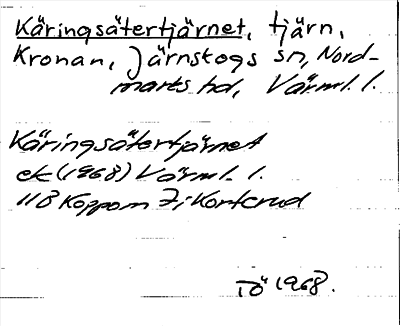 Käringsätertjärnet, tjärn,
Kronan, Järnskogs sn, Nord-
marks hd, Värml. l.
Käringsätertjärnet
ek (1968) Värml. l.
118 Koppom 7i Korterud
TÖ 1968.